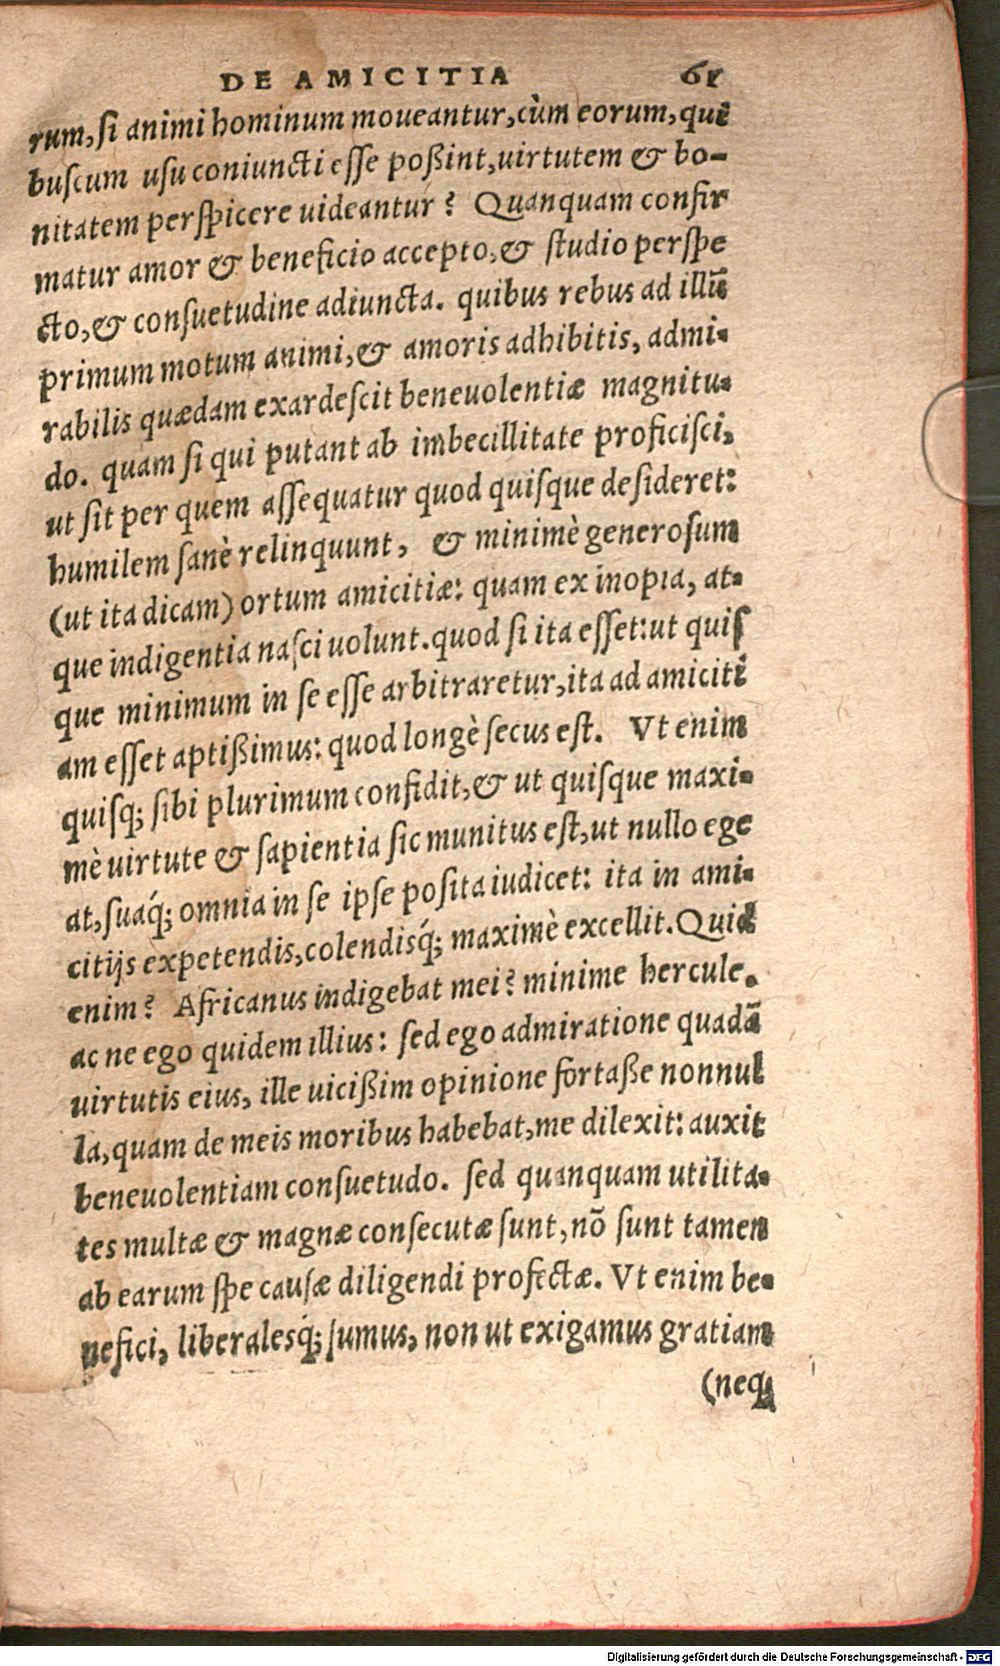 DE AMICITIA 61
rum, ſi animi hominum moueantur, cùm eorum, qui
buſcum uſu coniuncti eſſe poßint, uirtutem & bo-
nitatem perſpicere uideantur? Quanquam confir
matur amor & beneficio accepto, & ſtudio perſpe
cto, & conſuetudine adiuncta. quibus rebus ad illū
primum motum animi, & amoris adhibitis, admi-
rabilis quædam exardeſcit beneuolentiæ magnitu-
do. quam ſi qui putant ab imbecillitate proficiſci,
ut ſit per quem aſſequatur quod quiſque deſideret:
humilem ſanè relinquunt, & minimè generoſum
(ut ita dicam) ortum amicitiæ: quam ex inopia, at-
que indigentia naſci uolunt. quod ſi ita eſſet: ut quiſ
que minimum in ſe eſſe arbitraretur, ita ad amiciti
am eſſet aptißimus: quod longè ſecus eſt. Vt enim
quiſq; ſibi plurimum confidit, & ut quiſque maxi-
mè uirtute & ſapientia ſic munitus eſt, ut nullo ege
at, ſuaq́; omnia in ſe ipſe poſita iudicet: ita in ami-
citijs expetendis, colendisq́; maximè excellit. Quid
enim? Africanus indigebat mei? minime hercule.
ac ne ego quidem illius: ſed ego admiratione quadā
uirtutis eius, ille uicißim opinione fortaße nonnul
la, quam de meis moribus habebat, me dilexit: auxit
beneuolentiam conſuetudo. ſed quanquam utilita-
tes multæ & magnæ conſecutæ ſunt, nō ſunt tamen
ab earum ſpe cauſæ diligendi profectæ. Vt enim be-
nefici, liberalesq́; ſumus, non ut exigamus gratiam
(neq;
Digitalisierung gefördert durch die Deutsche Forschungsgemeinschaft - DFG